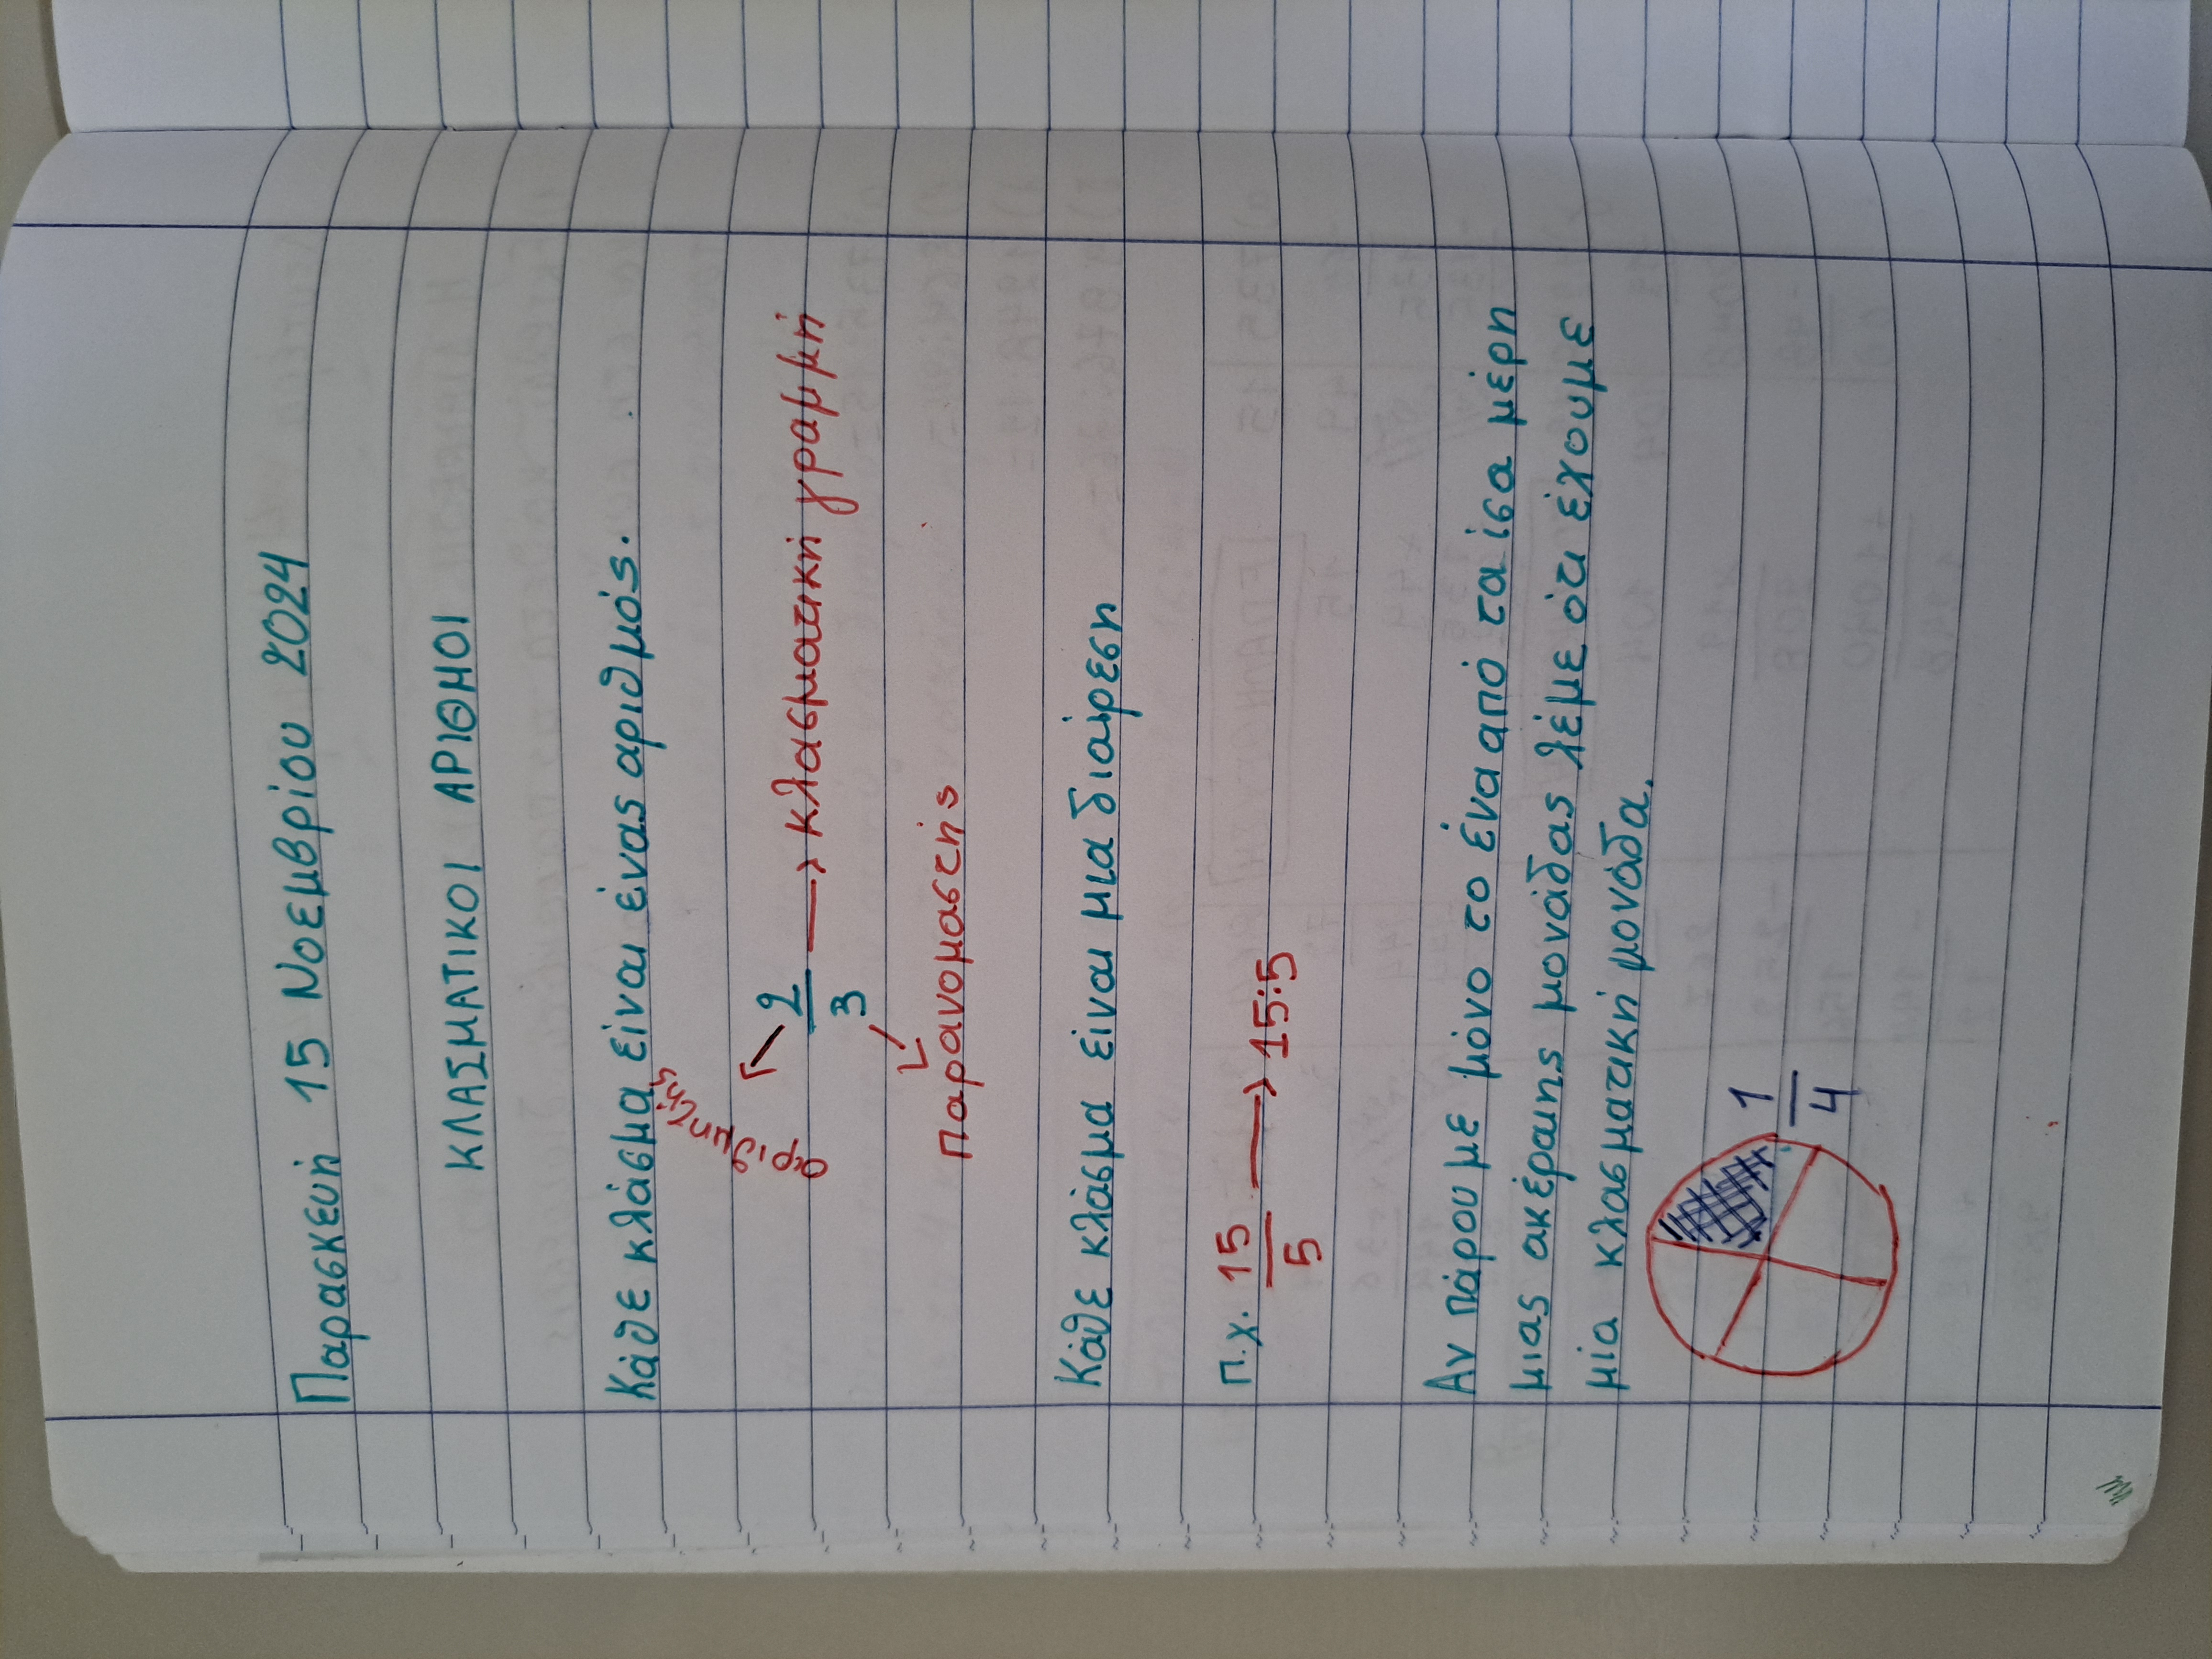 Παρασκευή 15 Νοεμβρίου 2024
ΚΛΑΣΜΑΤΙΚΟΙ ΑΡΙΘΜΟΙ
Κάθε κλάσμα είναι ένας αριθμός.
αριθμητής
2
3
κλασματική γραμμή
παρανομαστής
Κάθε κλάσμα είναι μια διαίρεση
π.χ. 15
5
15:5
Αν πάρουμε μόνο το ένα από τα ίσα μέρη
μιας ακέραιης μονάδας λέμε ότι έχουμε
μία κλασματική μονάδα.
1
4